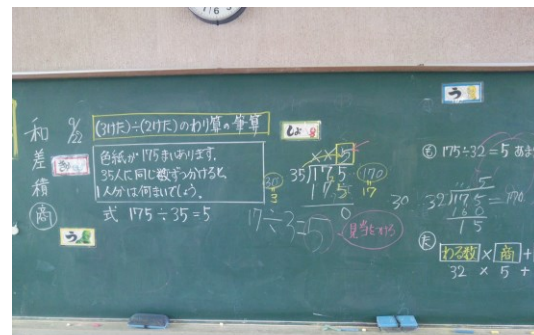 和
差
積
商
9/22
(3けた)÷(2けた)のわり算の筆算
色紙が175まいあります。
35人に同じ数ずつ分けると、
1人分は何まいでしょう。
式 175÷35=5
××5
35)175
175
0
3
170
17
17÷3=5
見当をつける
175÷32=5 あま
5
32)175
160
15
30
170
わる数×商+
32 × 5 +